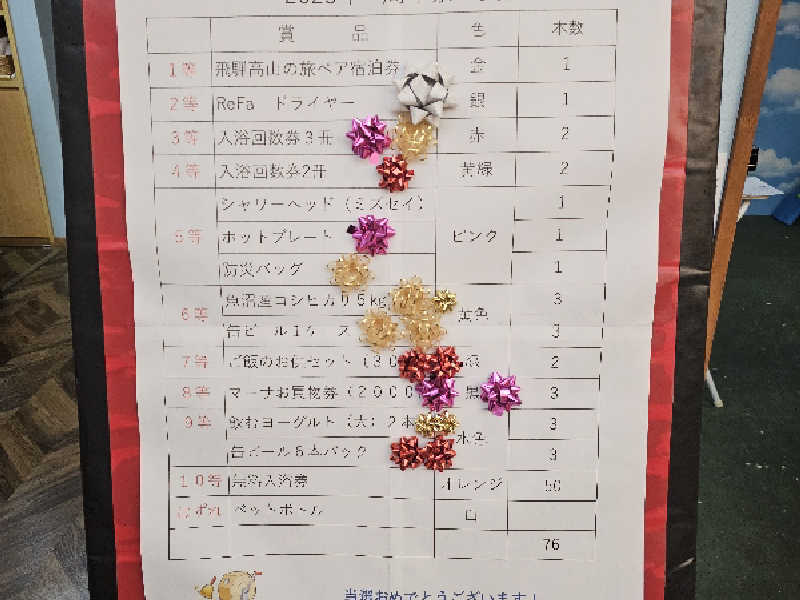 賞 品 色 本数
1等 飛騨高山の旅ペア宿泊券 金 1
2等 ReFa ドライヤー 銀 1
3等 入浴回数券3冊 赤 2
4等 入浴回数券2冊 黄緑 2
シャワーヘッド(ミズセイ) 1
5等 ホットプレート ピンク 1
防災バッグ 1
6等 魚沼産コシヒカリ5kg 黄色 3
缶ビール1ケース 3
7等 ご飯のお供セット(30 2
8等 マーナお買物券(2000 黒 3
9等 飲むヨーグルト(大)2本 水色 3
缶ビール6本パック 3
10等 無料入浴券 オレンジ 50
はずれ ペットボトル 白
76
当選おめでとうございます!